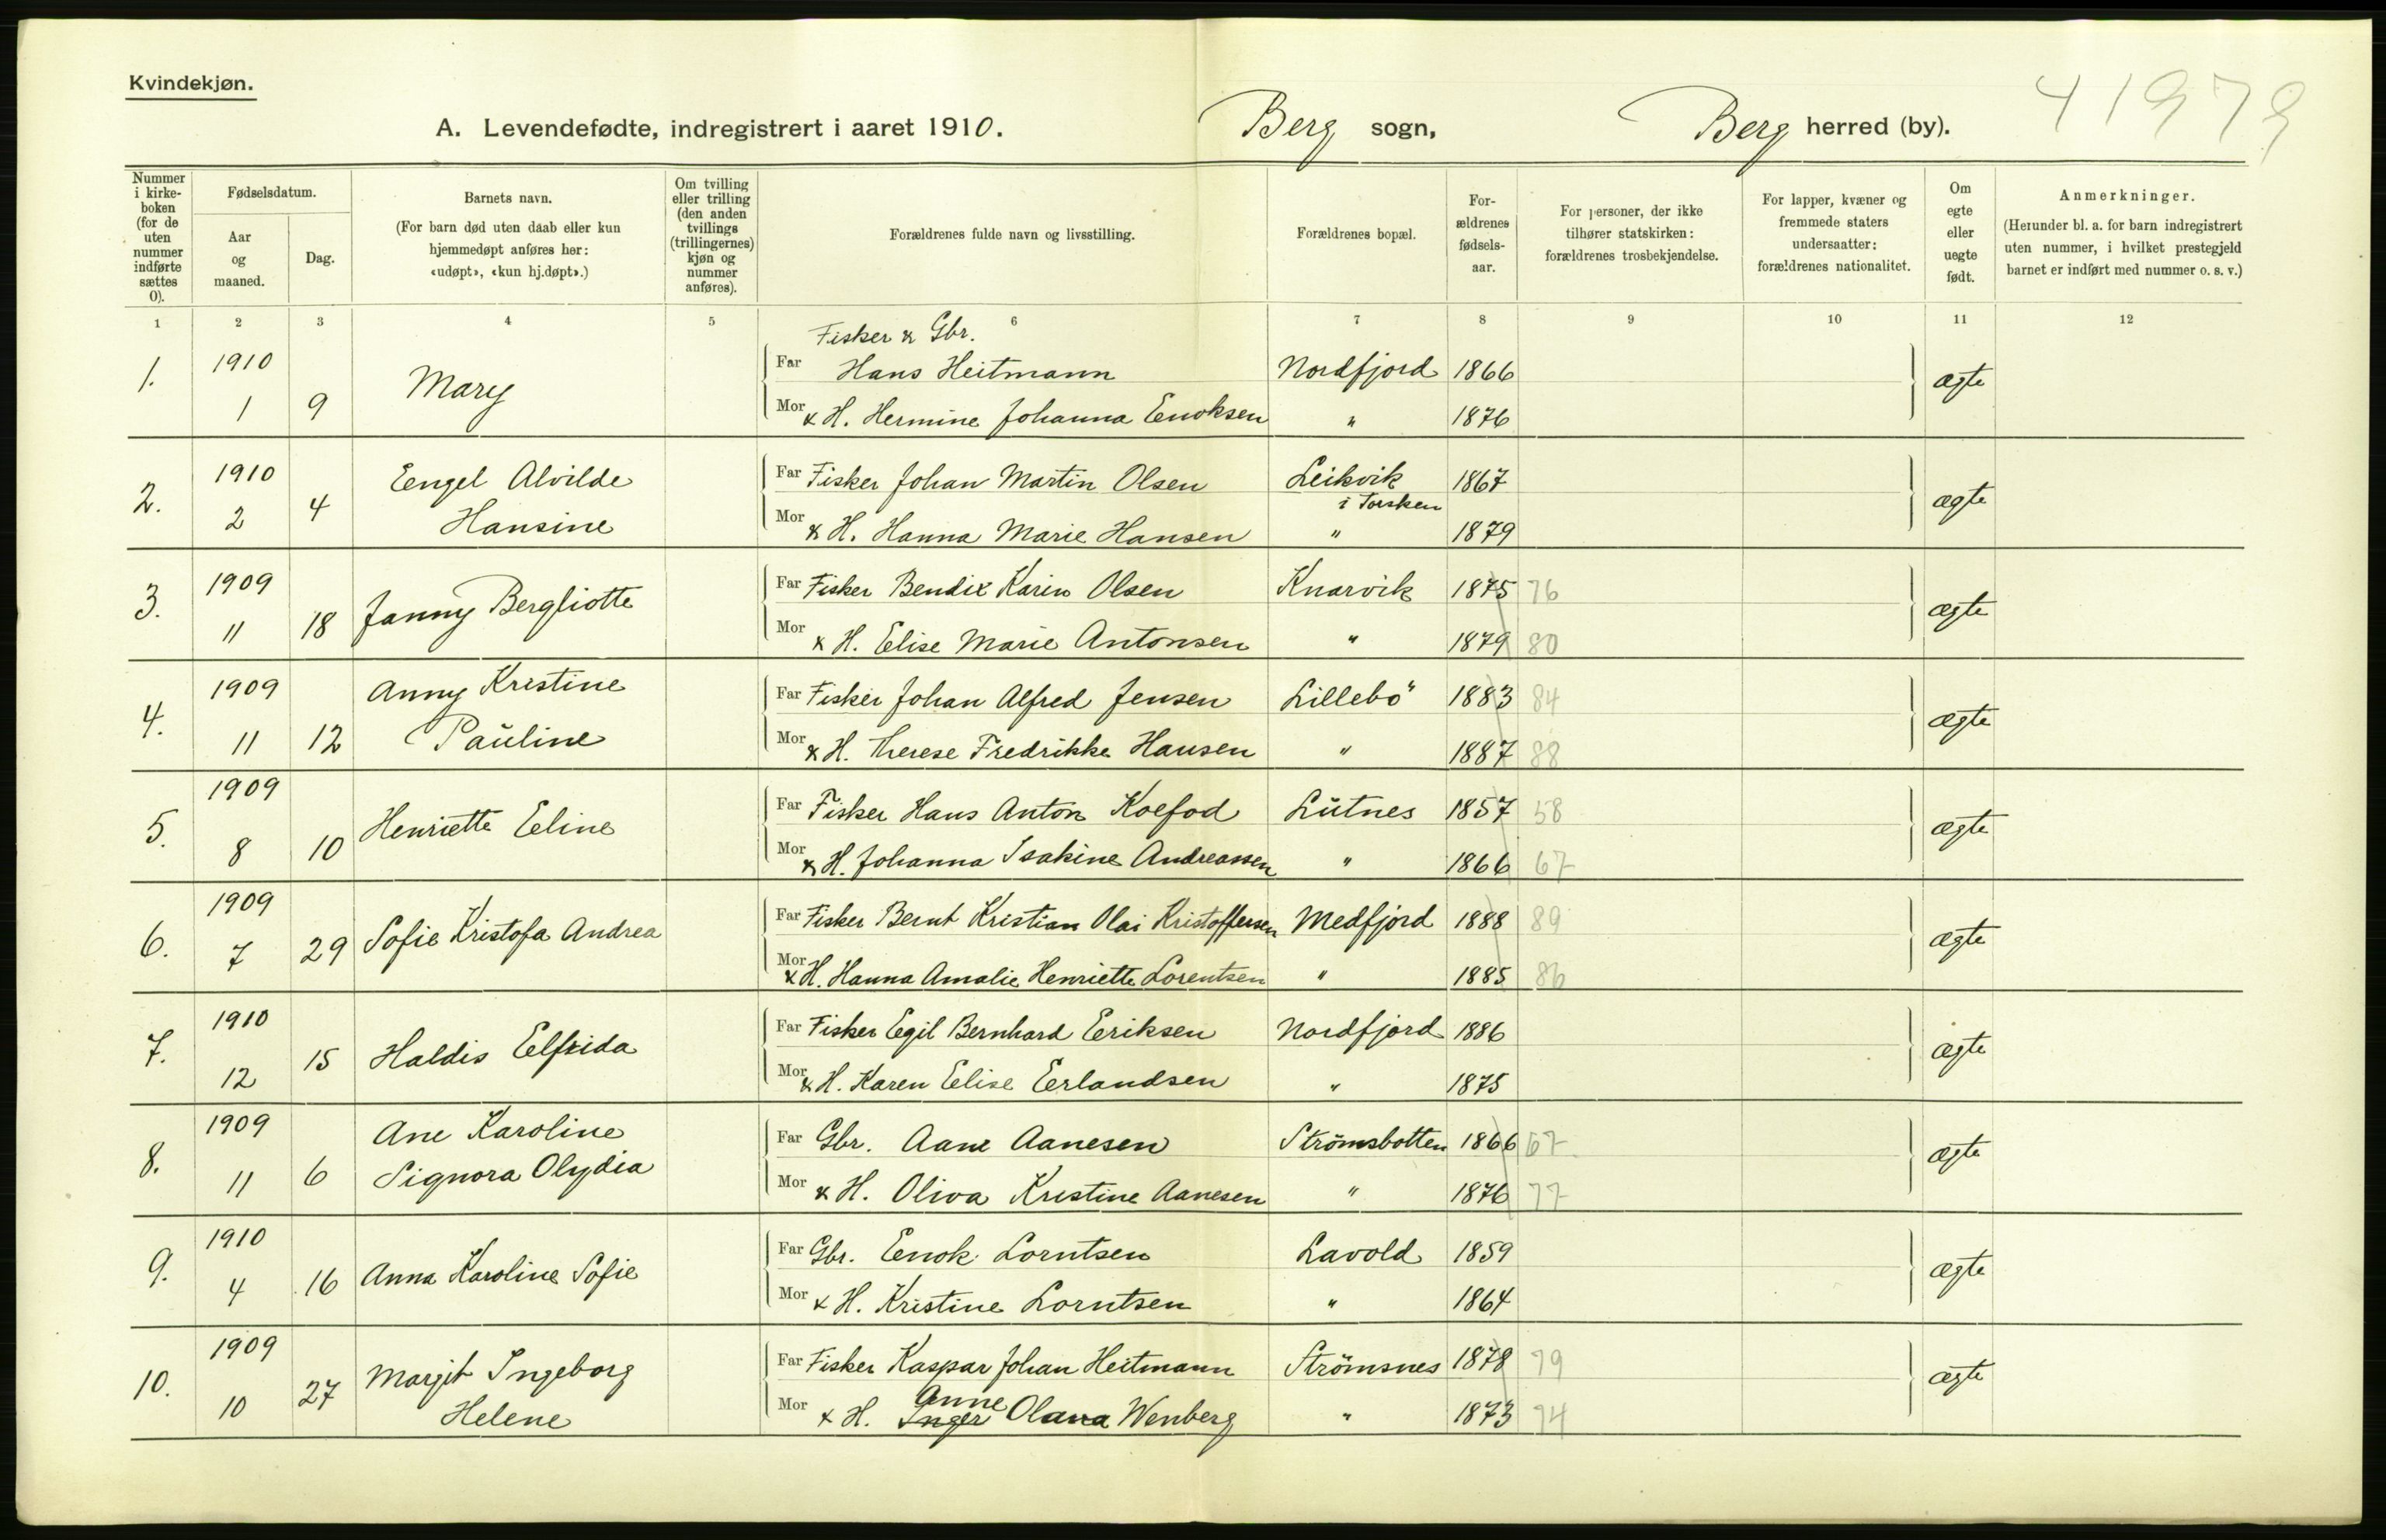 Kvindekjøn.
41979
A. Levendefødte, indregistrert i aaret 1910. Berg sogn, Berg herred (by).
Nummer i kirke-boken (for de uten nummer indførte sættes 0).
Fødselsdatum.
Aar og maaned.
Dag.
Barnets navn.
(For barn død uten daab eller kun hjemmedøpt anføres her: «udøpt», «kun hj.døpt».)
Om tvilling eller trilling (den anden tvillings (trillingernes) kjøn og nummer anføres).
Forældrenes fulde navn og livsstilling.
Forældrenes bopæl.
For-ældrenes fødsels-aar.
For personer, der ikke tilhører statskirken: forældrenes trosbekjendelse.
For lapper, kvæner og fremmede staters undersaatter: forældrenes nationalitet.
Om egte eller uegte født.
Anmerkninger.
(Herunder bl. a. for barn indregistrert uten nummer, i hvilket prestegjeld barnet er indført med nummer o. s. v.)
1 2 3 4 5 6 7 8 9 10 11 12
Fisker & Gbr.
1. 1910 Mary Far Hans Heitmann Nordfjord 1866 ægte
1 9 Mor & H. Hermine Johanna Eenoksen " 1876
2. 1910 Eengel Alvilde Far Fisker Johan Martin Olsen Leikvik 1867 ægte
i Torsken
2 4 Hansine Mor & H. Hanna Marie Hansen " 1879
3. 1909 Janny Bergliotte Far Fisker Bendix Karin Olsen Knarvik 1875 76 ægte
11 18 Mor & H. Elise Marie Antonsen " 1879 80
4. 1909 Anny Kristine Far Fisker Johan Alfred Jensen Lillebö 1883 84 ægte
11 12 Pauline Mor & H. Therese Fredrikke Hansen " 1887 88
5. 1909 Henriette Eeline Far Fisker Hans Anton Koefod Lutnes 1857 58 ægte
8 10 Mor & H. Johanna Isakine Andreassen " 1866 67
6. 1909 Sofie Kristofa Andrea Far Fisker Bernt Kristian Olai Kristoffersen Medfjord 1888 89 ægte
7 29 Mor & H. Hanna Amalie Henriette Lorentsen " 1885 86
7. 1910 Haldis Eelfrida Far Fisker Egil Bernhard Eeriksen Nordfjord 1886 ægte
12 15 Mor & H. Karen Eelise Eerlandsen " 1875
8. 1909 Ane Karoline Far Gbr. Aane Aanesen Strömsbotten 1866 67 ægte
11 6 Signora Olydia Mor & H. Oliva Kristine Aanesen " 1876 77
9. 1910 Anna Karoline Sofie Far Gbr. Eenok Lorntsen Lavold 1859 ægte
4 16 Mor & H. Kristine Lorntsen " 1864
10. 1909 Margit Ingeborg Far Fisker Kaspar Johan Heitmann Strömsnes 1878 79 ægte
Anne
10 27 Helene Mor & H. Inger Olava Wenberg " 1873 74